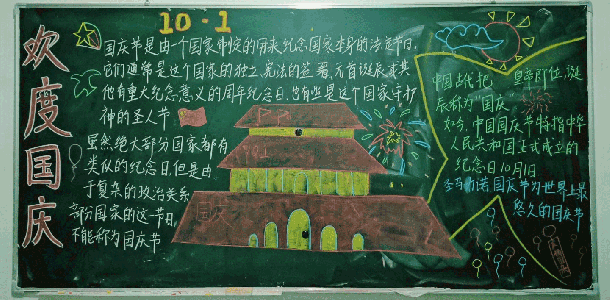 欢度国庆
10·1
国庆节是由一个国家制定的用来纪念国家本身的法定节日,
它们通常是这个国家的独立、宪法的签署、元首诞辰或其
他有重大纪念意义的周年纪念日,也有些是这个国家守护
神的圣人节
虽然绝大部分国家都有
类似的纪念日,但是由
于复杂的政治关系,
部分国家的这一节日,
不能称为国庆节
中国古代把 皇帝即位、诞
辰称为 国庆
如今,中国国庆节特指中华
人民共和国正式成立的
纪念日10月1日
圣马力诺国庆节为世界上最
悠久的国庆节